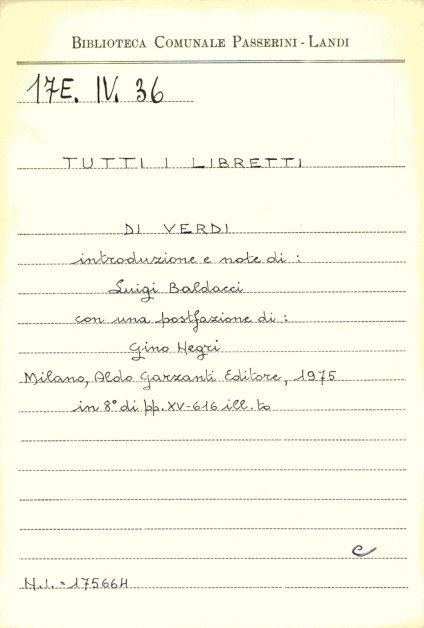 BIBLIOTECA COMUNALE PASSERINI - LANDI
17E. IV. 36
TUTTI I LIBRETTI
DI VERDI
introduzione e note di :
Luigi Baldacci
con una postfazione di :
Gino Negri
Milano, Aldo Garzanti Editore, 1975
in 8° di pp. XV-616 ill.to
e
N.I. = 175664